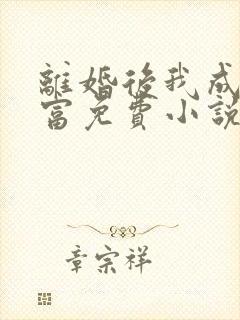 離婚後我成
富免費小說
章宗祥